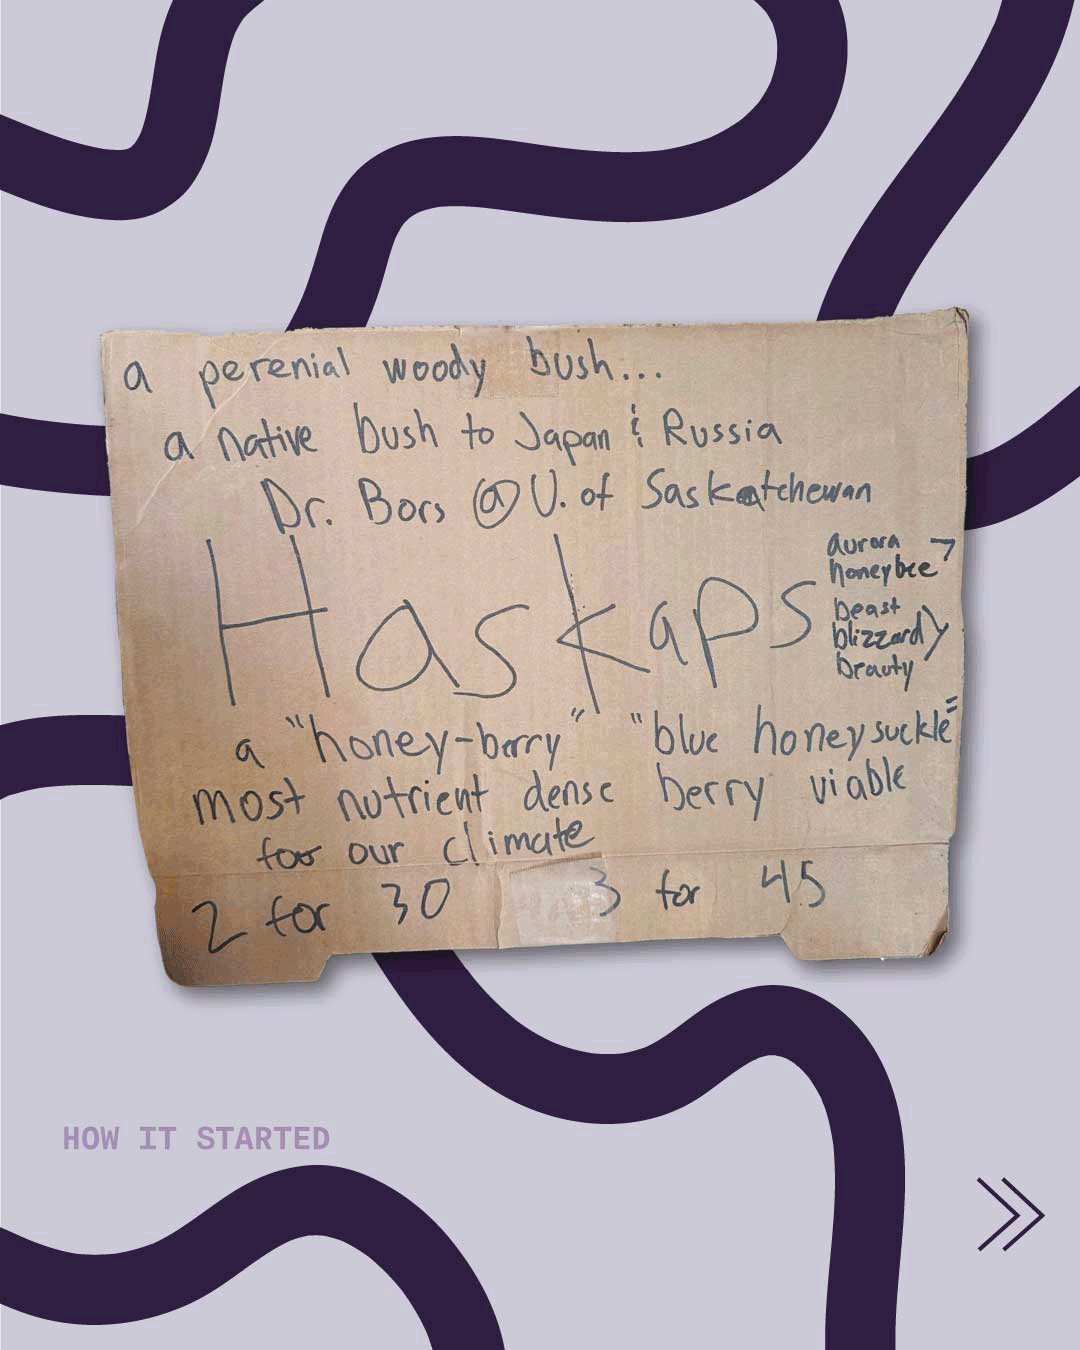 a perenial woody bush...
a native bush to Japan & Russia
Dr. Bors @ U. of Saskatchewan
Haskaps
aurora
honeybee
beast
blizzard
beauty
a "honey-berry" "blue honeysuckle"
most nutrient dense berry viable
for our climate
2 for 30 3 for 45
HOW IT STARTED